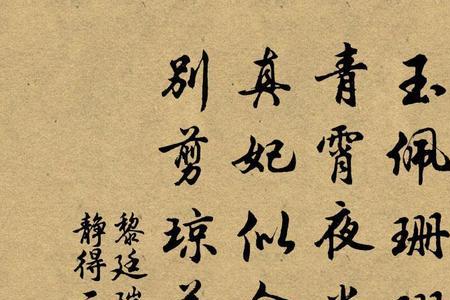 玉佩珊
青霄夜
真妃似
别剪琼
黎廷瑞
静得